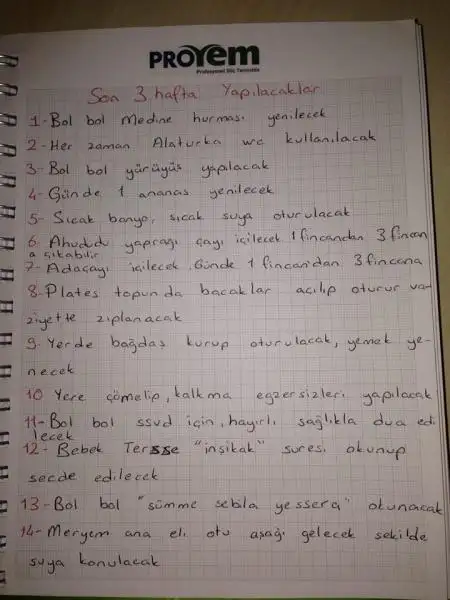 PROYem
Profesyonel Süt Yemidir
Son 3 hafta Yapılacaklar
1-Bol bol Medine hurması yenilecek
2-Her zaman Alaturka wc kullanılacak
3-Bol bol yürüyüş yapılacak
4-Günde 1 ananas yenilecek
5-Sıcak banyo, sıcak suya oturulacak
6. Ahududu yaprağı çayı içilecek 1 fincandan 3 fincan
a çıkabilir
7-Adaçayı içilecek. Günde 1 fincandan 3 fincana
8-Plates topunda bacaklar açılıp oturur va
ziyette zıplanacak
9. Yerde bağdaş kurup oturulacak, yemek ye-
necek
10 Yere çömelip, kalkma egzersizleri yapılacak
11-Bol bol ssvd için, hayırlı sağlıkla dua edi
lecek
12- Bebek Tersse "inşikak" suresi okunup
secde edilecek
13-Bol bol "sümme sebila yessera" okunacak
14-Meryem ana eli otu aşağı gelecek şekilde
suya konulacak